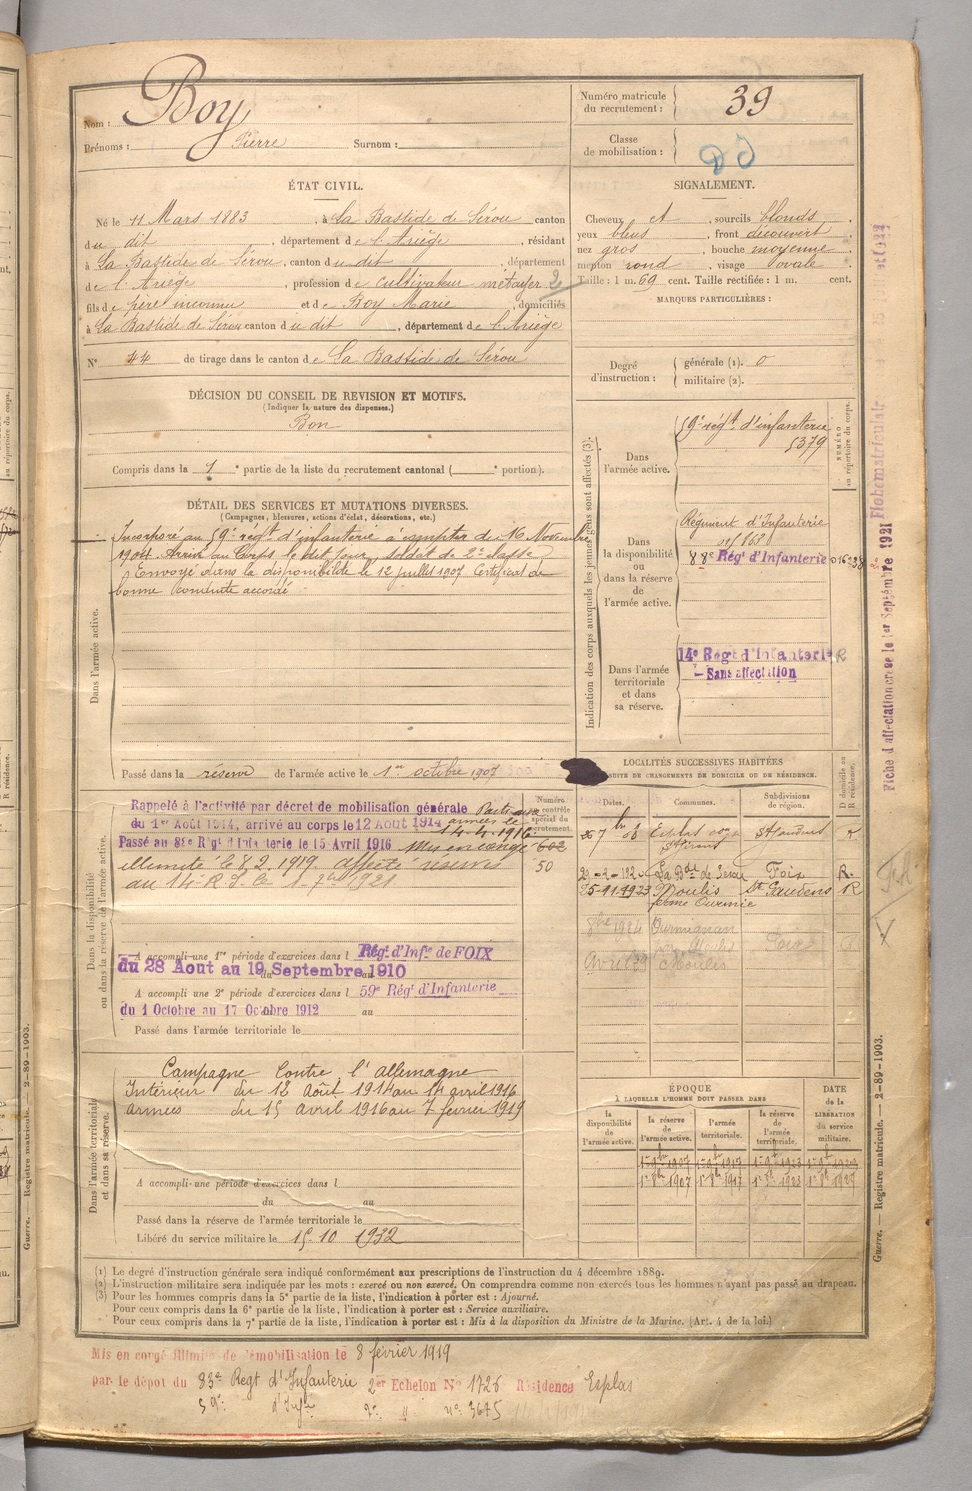 Nom : Boy
Prénoms : Pierre Surnom :
Numéro matricule du recrutement : 39
Classe de mobilisation :
ÉTAT CIVIL.
Né le 11 Mars 1883, à La Bastide de Sérou canton
du dit, département de l'Ariège, résidant
à La Bastide de Sérou, canton du dit, département
de l'Ariège, profession de cultivateur métayer 2
fils de père inconnu et de Boy Marie, domiciliés
à La Bastide de Sérou canton du dit, département de l'Ariège
N° 44 de tirage dans le canton de La Bastide de Sérou
SIGNALEMENT.
Cheveux et, sourcils blonds.
yeux bleus, front découvert
nez gros, bouche moyenne
menton rond, visage ovale.
Taille : 1 m. 69 cent. Taille rectifiée : 1 m. cent.
MARQUES PARTICULIÈRES :
Degré d'instruction : générale (1). 0
militaire (2).
DÉCISION DU CONSEIL DE REVISION ET MOTIFS.
(Indiquer la nature des dispenses.)
Bon
Compris dans la 1e partie de la liste du recrutement cantonal ( e portion).
DÉTAIL DES SERVICES ET MUTATIONS DIVERSES.
(Campagnes, blessures, actions d'éclat, décorations, etc.)
Dans l'armée active.
Incorporé au 59e régt d'infanterie à compter du 16 Novembre
1904. Arrivé au Corps le dit jour, soldat de 2e classe
Envoyé dans la disponibilité le 12 juillet 1907 Certificat de
bonne conduite accordé
Passé dans la réserve de l'armée active le 1er octobre 1907
Indication des corps auxquels les jeunes gens sont affectés (3).
NUMÉRO au répertoire du corps.
Dans l'armée active.
59e régt d'infanterie
5379
Dans la disponibilité ou dans la réserve de l'armée active.
Régiment d'Infanterie
88e Régt d'Infanterie
Dans l'armée territoriale et dans sa réserve.
14e Régt d'Infanterie R
- Sans affectation
Fiche d'affectation créée le 1er Septembre 1921 Fiche matriculaire
Dans la disponibilité ou dans la réserve de l'armée active.
Rappelé à l'activité par décret de mobilisation générale Parti aux
du 1er Août 1914, arrivé au corps le 12 Août 1914 armées le
14-4-1916.
Passé au 83e Régt d'Infanterie le 15 Avril 1916 Mis en congé
illimité le 8.2.1919. affecté réserve
au 14e R.I. le 1-7bre 1921
Numéro de contrôle spécial du recrutement.
602
50
A accompli une 1re période d'exercices dans l Régt d'Infie de FOIX
du 28 Aout au 19 Septembre 1910
A accompli une 2e période d'exercices dans l 59e Régt d'Infanterie
du 1 Octobre au 17 Octobre 1912 au
Passé dans l'armée territoriale le
LOCALITÉS SUCCESSIVES HABITÉES
PAR SUITE DE CHANGEMENTS DE DOMICILE OU DE RÉSIDENCE.
Dates. Communes. Subdivisions de région. D domicile ou R résidence.
Esplas St Gaudens R
La Bde de Sérou Foix R.
25-11-1923 Moulis St Gaudens R
ferme Ourmié
1924 Ourmignan
Avril 39 Moulis
Dans l'armée territoriale et dans sa réserve.
Campagne Contre l'Allemagne
Intérieur du 12 Août 1914 au 14 avril 1916
armées du 15 avril 1916 au 7 février 1919
A accompli une période d'exercices dans l
du au
Passé dans la réserve de l'armée territoriale le
Libéré du service militaire le 15.10 1932
ÉPOQUE
À LAQUELLE L'HOMME DOIT PASSER DANS
DATE de la LIBÉRATION du service militaire.
la disponibilité de l'armée active. la réserve de l'armée active. l'armée territoriale. la réserve de l'armée territoriale.
1er 9bre 1907 1er 9bre 1917 1er 9bre 1923 1er 9bre 1929
1er 8bre 1907 1er 8bre 1917 1er 8bre 1923 1er 8bre 1929
(1) Le degré d'instruction générale sera indiqué conformément aux prescriptions de l'instruction du 4 décembre 1889.
(2) L'instruction militaire sera indiquée par les mots : exercé ou non exercé. On comprendra comme non exercés tous les hommes n'ayant pas passé au drapeau.
(3) Pour les hommes compris dans la 5e partie de la liste, l'indication à porter est : Ajourné.
Pour ceux compris dans la 6e partie de la liste, l'indication à porter est : Service auxiliaire.
Pour ceux compris dans la 7e partie de la liste, l'indication à porter est : Mis à la disposition du Ministre de la Marine. (Art. 4 de la loi.)
Guerre. — Registre matricule. — 2-89-1903.
Guerre. — Registre matricule. — 2-89-1903.
Mis en congé illimité de démobilisation le 8 février 1919
par le dépôt du 83e Regt d'Infanterie 2er Echelon No 1726 Résidence Esplas
59e d'Infie 2e " no 3675